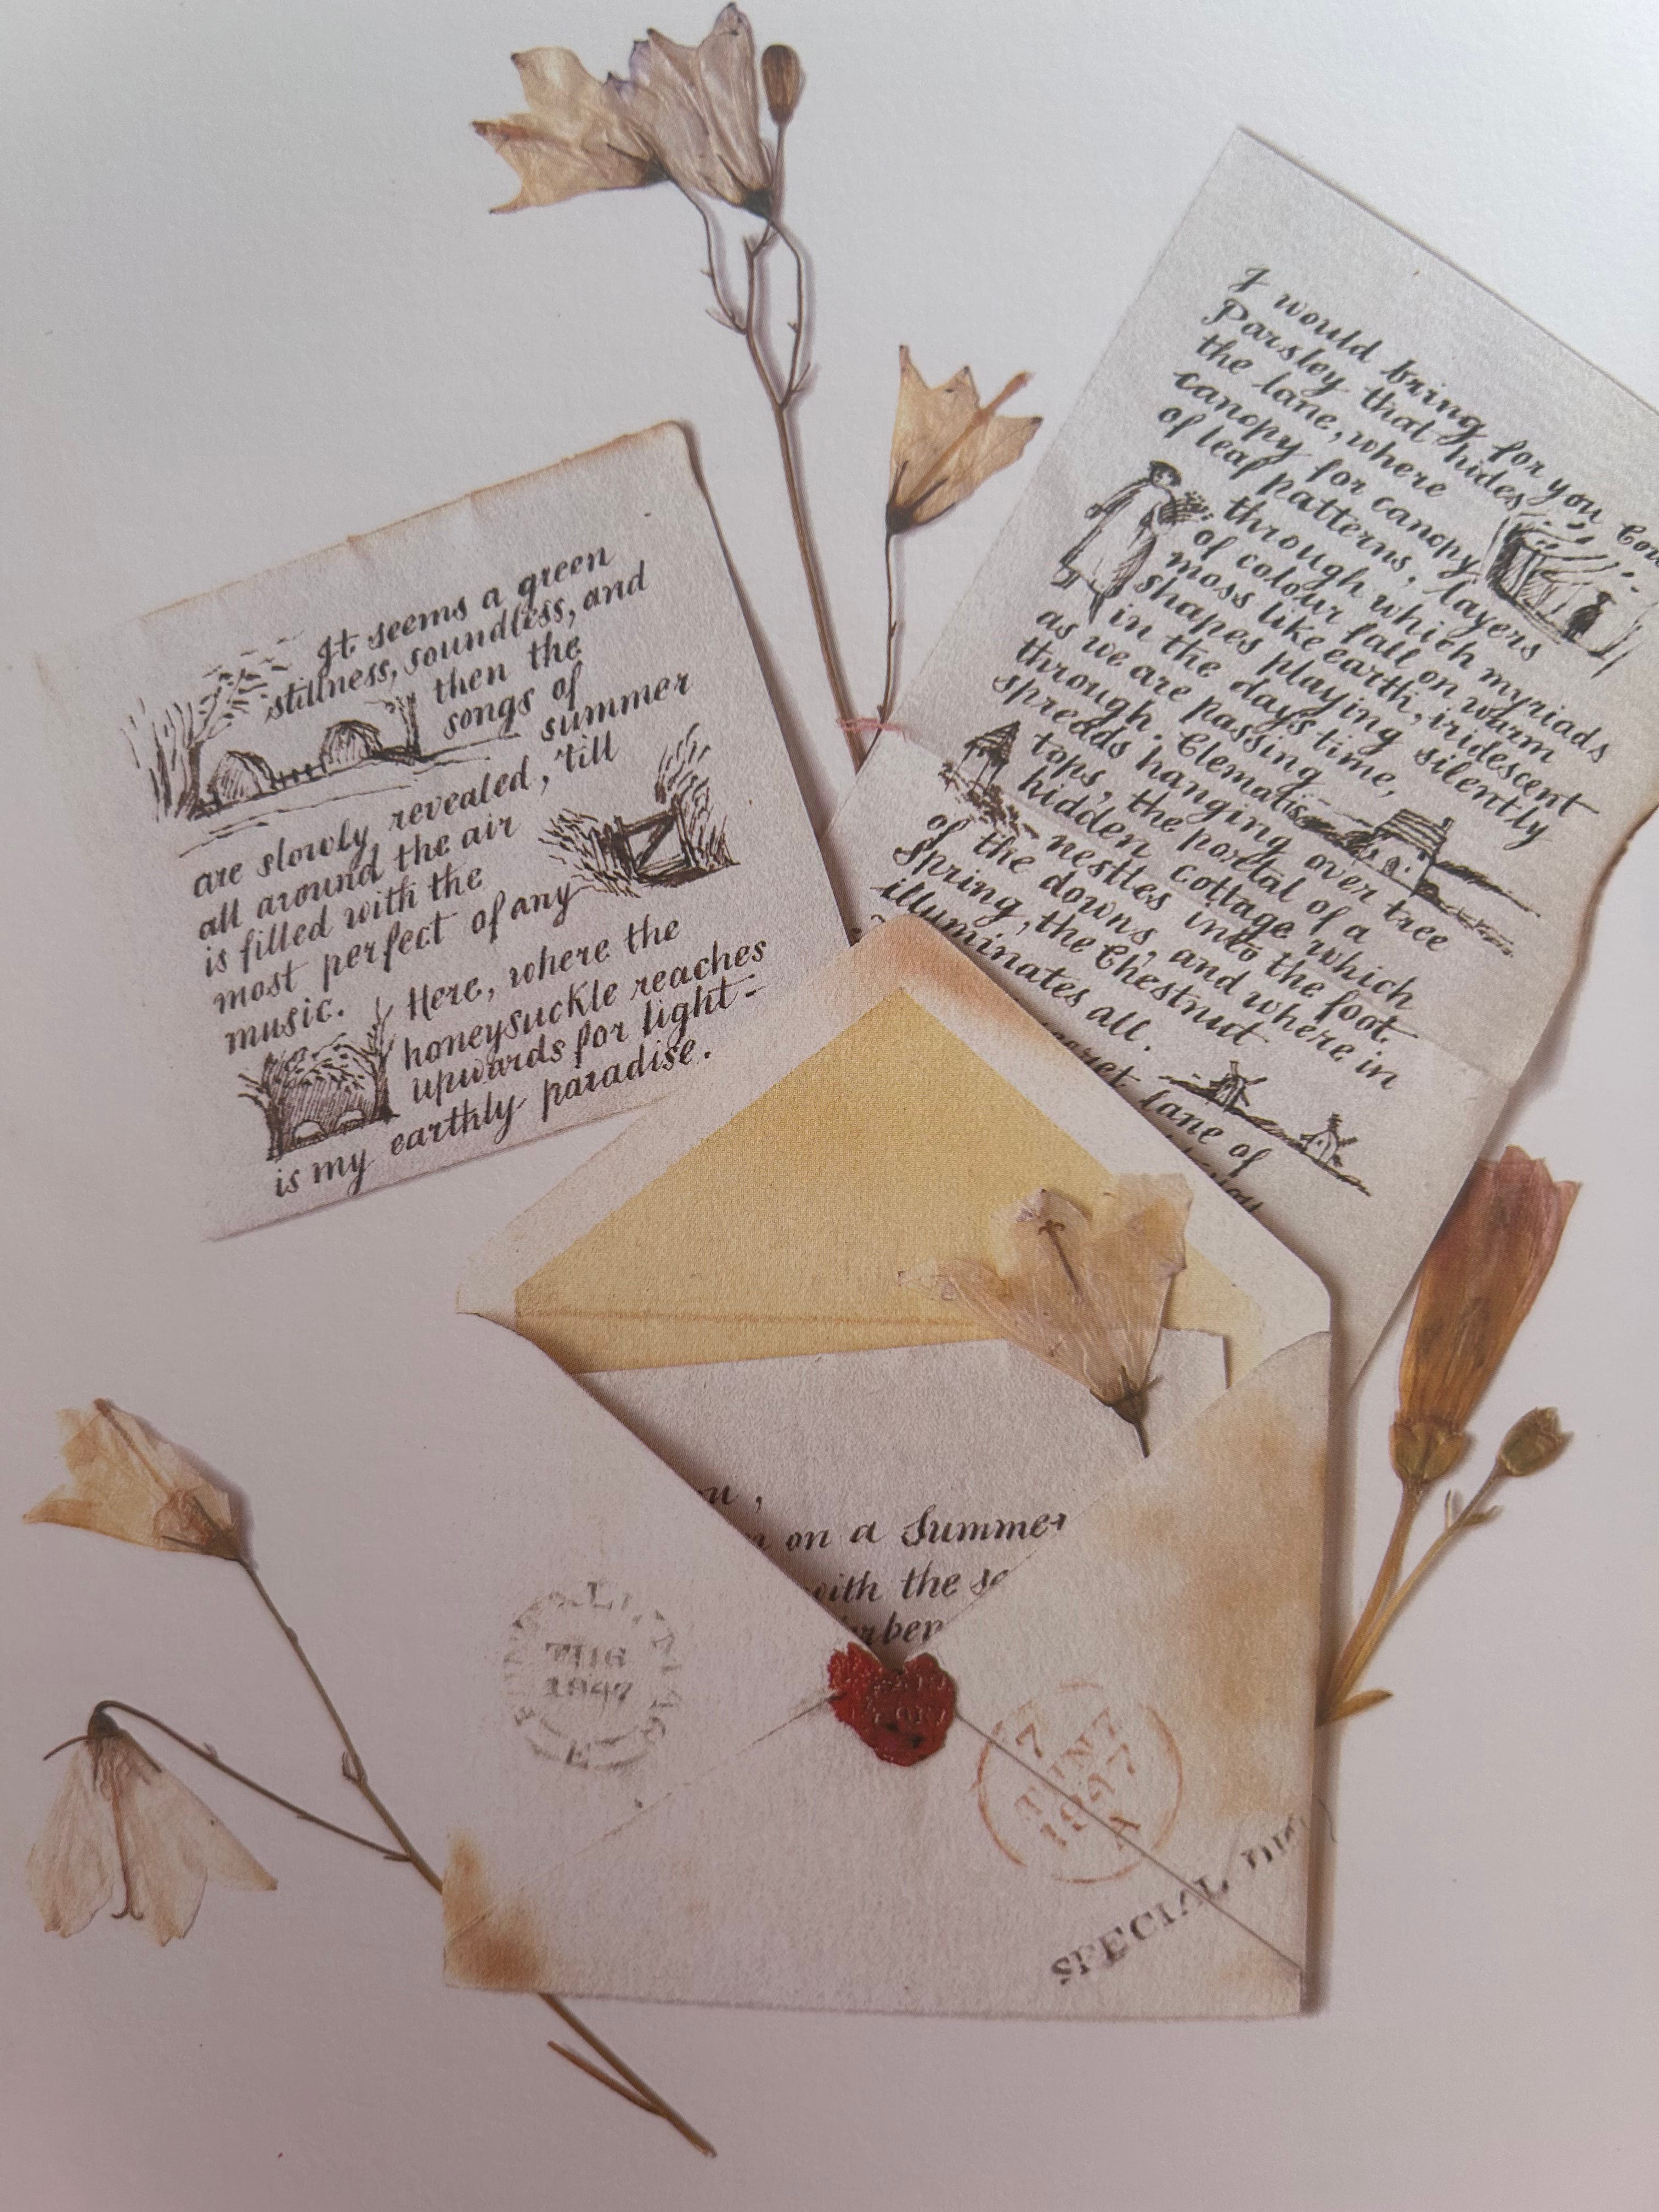 It seems a green
stillness, soundless, and
then the
songs of
summer
are slowly revealed, 'till
all around the air
is filled with the
most perfect of any
music.
Here, where the
honeysuckle reaches
upwards for light -
is my earthly paradise.
I would bring for you Cow
Parsley that hides
the lane, where
canopy for canopy
of leaf patterns, layers
through which myriads
of colour fall on warm
moss like earth, iridescent
shapes playing silently
in the day's time,
as we are passing
through. Clematis
spreads hanging over tree
tops, the portal of a
hidden cottage which
nestles into the foot
of the downs, and where in
Spring, the Chestnut
illuminates all.
lane of
on a Summer
with the
1847
7
JUN 7
1847
A
SPECIAL